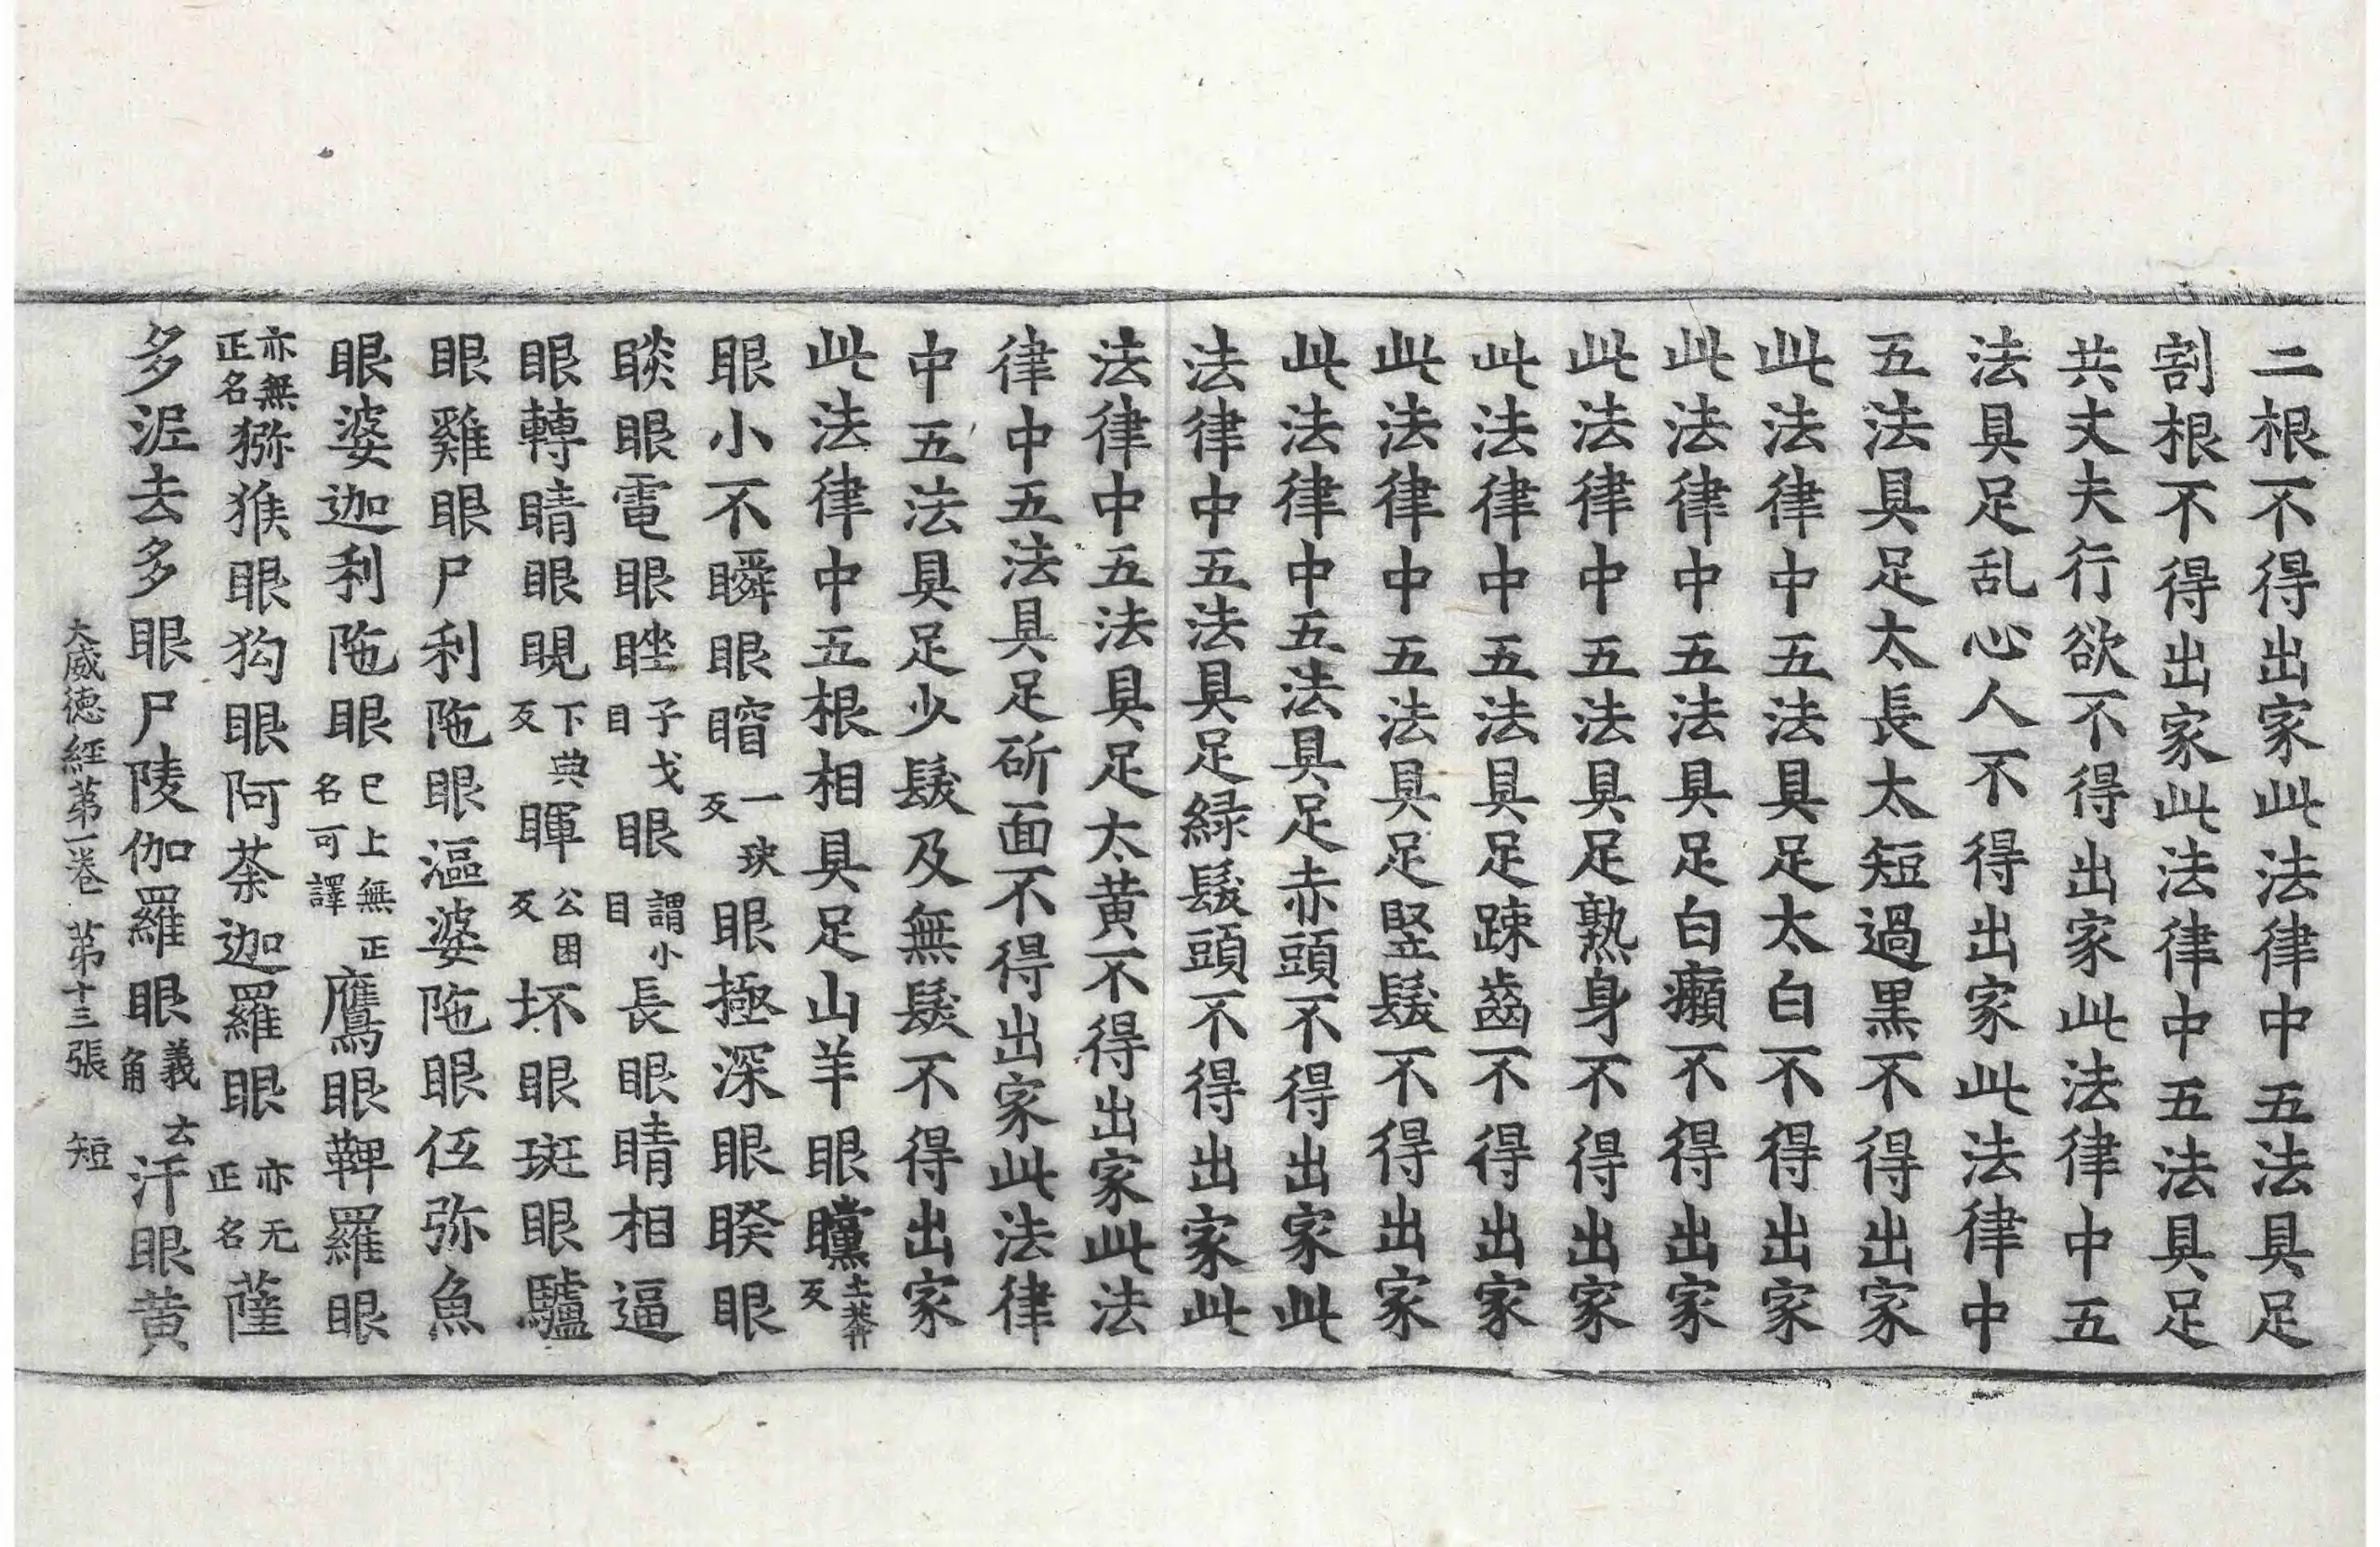 二根不得出家此法律中五法具足
割根不得出家此法律中五法具足
共丈夫行欲不得出家此法律中五
法具足乱心人不得出家此法律中
五法具足太長太短過黒不得出家
此法律中五法具足太白不得出家
此法律中五法具足白癩不得出家
此法律中五法具足熟身不得出家
此法律中五法具足踈齒不得出家
此法律中五法具足竪髮不得出家
此法律中五法具足赤頭不得出家此
法律中五法具足緑髮頭不得出家此
法律中五法具足太黄不得出家此法
律中五法具足斫面不得出家此法律
中五法具足少髮及無髮不得出家
此法律中五根相具足山羊眼矘土莽反
眼小不瞬眼䁘一玦反眼極深眼睽眼
睒眼電眼睉子戈目眼謂小目長眼睛相逼
眼轉睛眼睍下典反睴公困反坏眼斑眼驢
眼雞眼尸利陁眼漚婆陁眼伍弥魚
眼婆迦利陁眼巳上無正名可譯鷹眼鞞羅眼
亦無正名猕猴眼狗眼阿荼迦羅眼亦无正名薩
多泥去多眼尸陵伽羅眼義云角汗眼黄
大威德經第一卷 第十三張 短